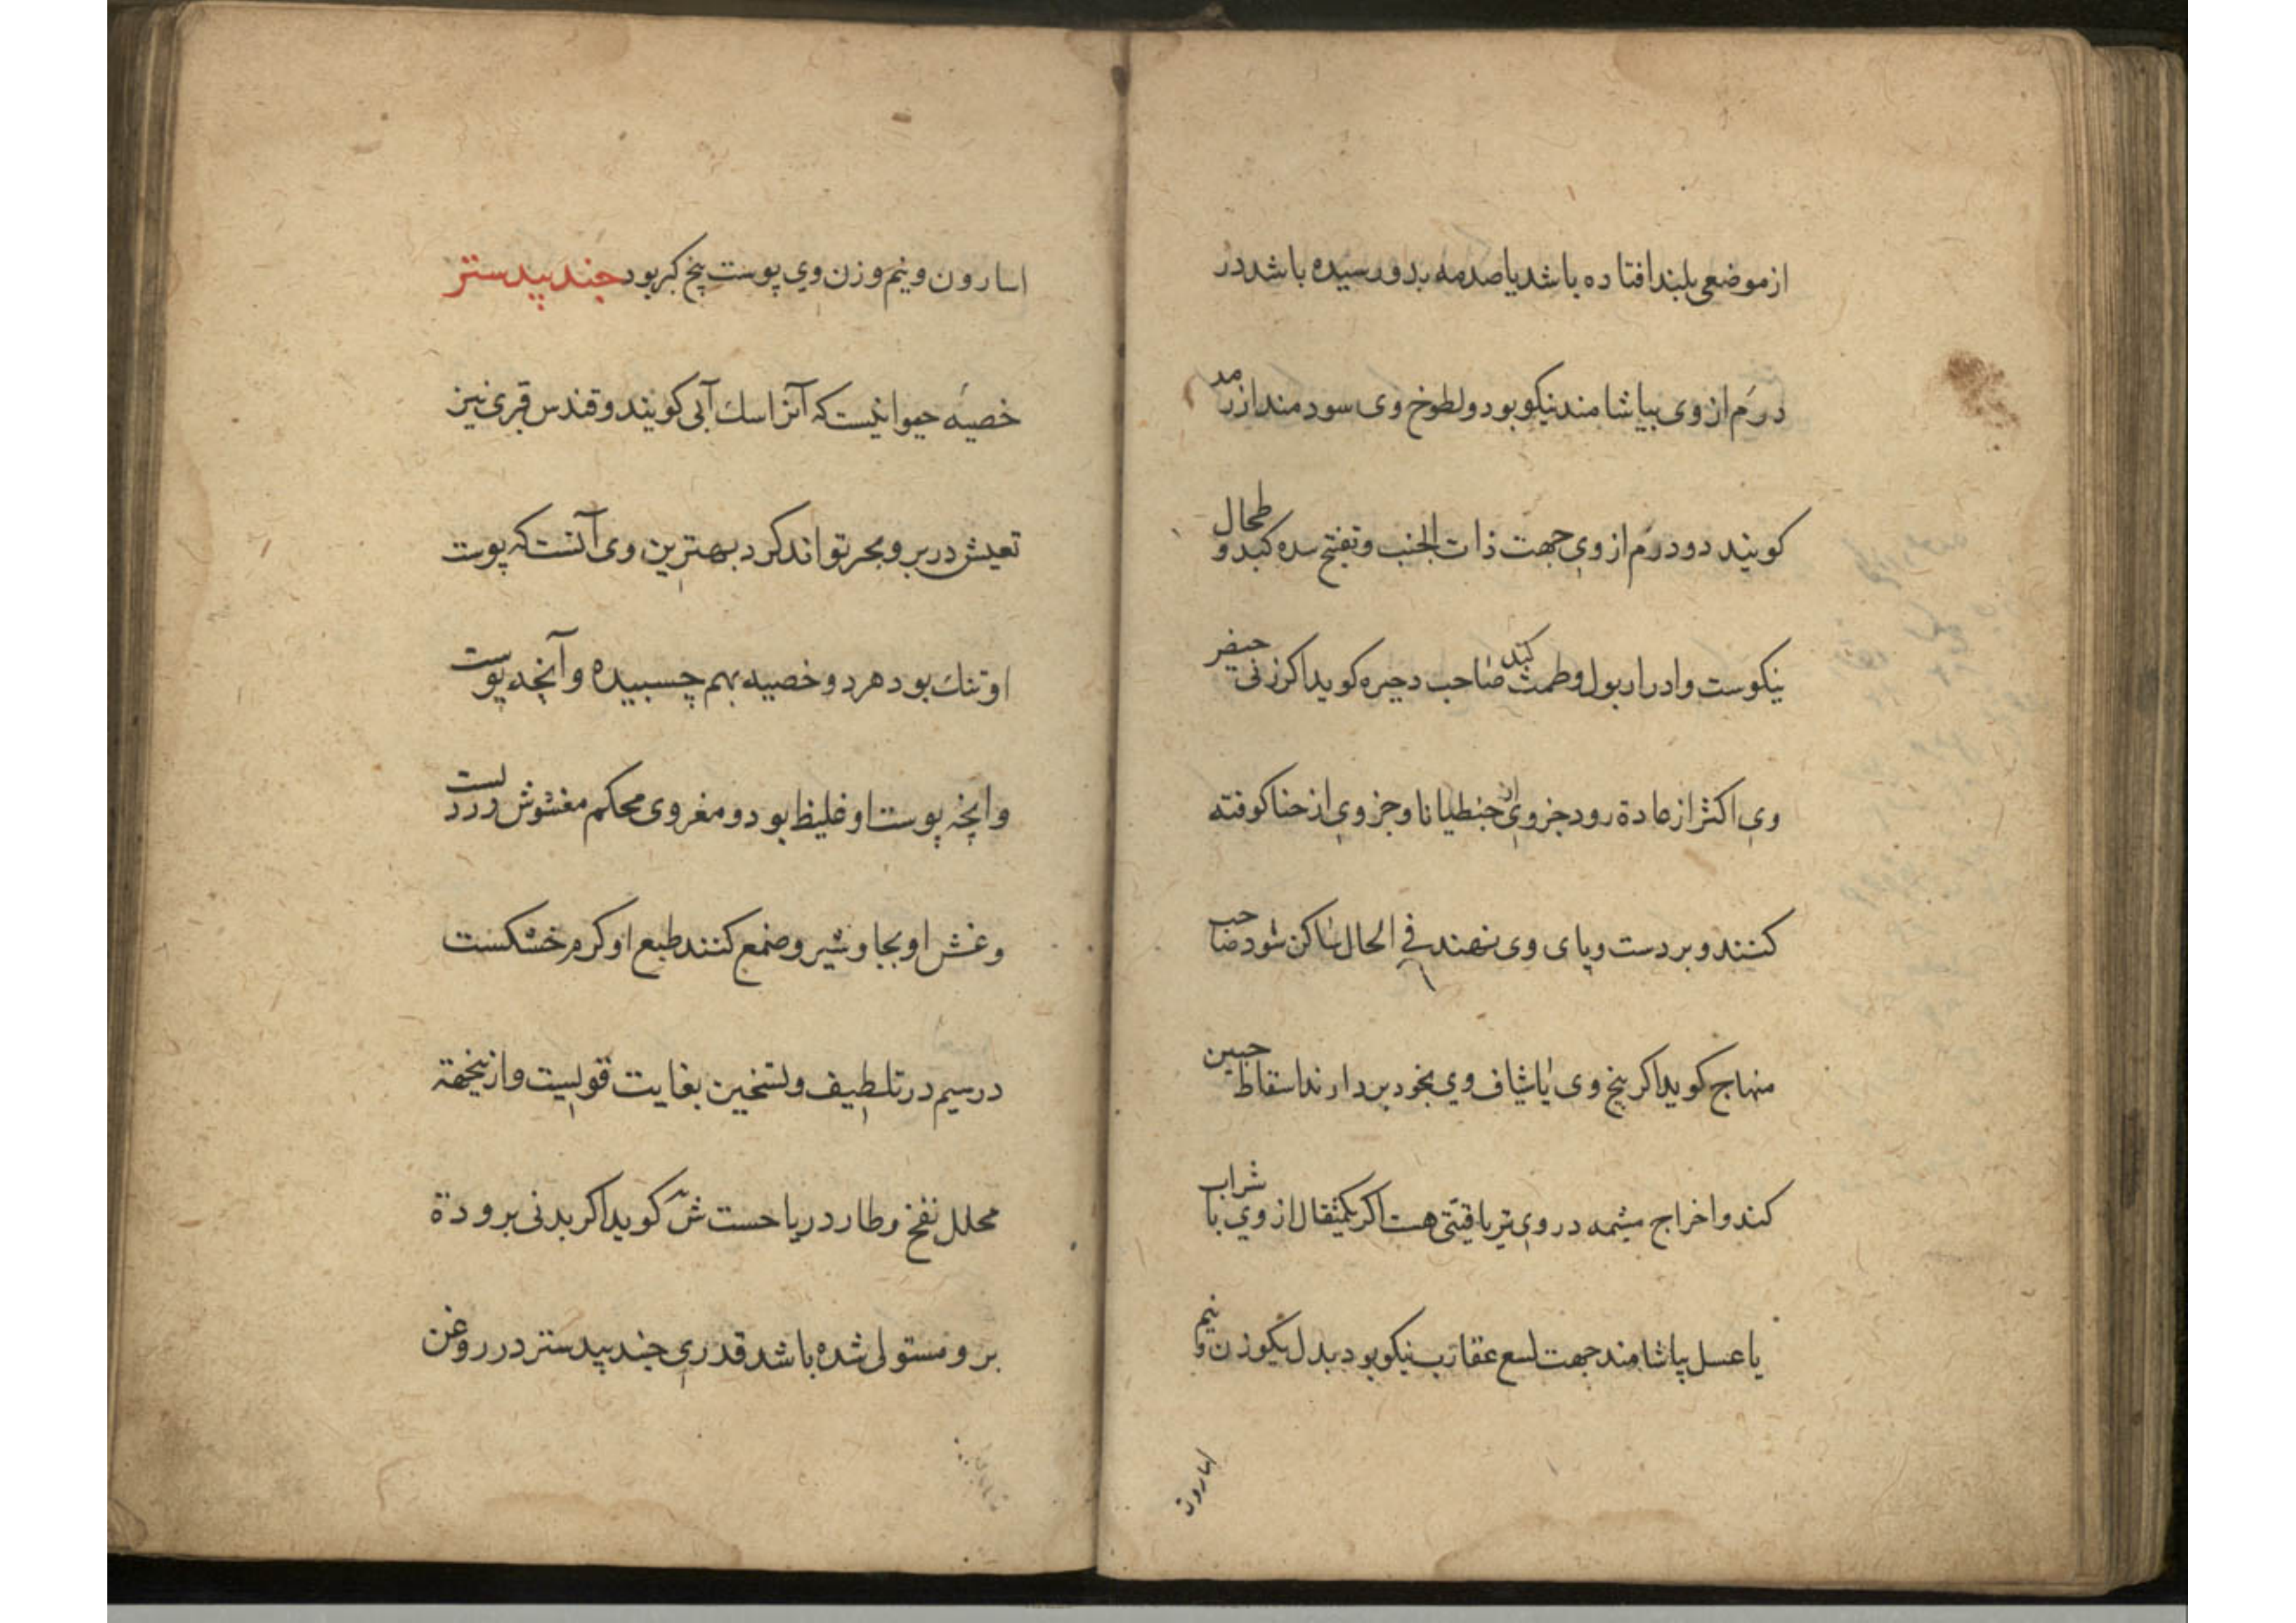 از موضعی بلند افتاده باشد یا صدمه بدو رسیده باشد در
درم از وی بیاشامند نیکو بود و لطوخ وی سودمند از رمد
کویند دو درم از وی جهت ذات الجنب و تفتح سده کبد و طحال
نیکوست و ادرار بول و طمث کند صاحب دجیره کوید اکر زنی حیض
وی اکثر از عادة رود جزوی از جنطیانا و جزوی از حنا کوفته
کنند و بر دست و پای وی نهند فی الحال ساکن شود صاحب
منهاج کوید اکر بیخ وی یا شیاف وی بخود بردارند اسقاط جنین
کند و اخراج مشمه در وی تریاقیتی هست اکر یکمثقال از وی با شراب
یا عسل بیاشامند جهت لسع عقارب نیکو بود بدل یکوزن و نیم
اسارون
اسارون و نیم وزن وی پوست بیخ کبر بود جند بیدستر
خصیه حیوانیست که آنرا سك آبی کویند و قندس قبری نیز
تعیش در بر و بحر تواند کرد بهترین وی آنست که پوست
او تنك بود هر دو خصیه بهم چسبیده و آنچه پوست
وانچه پوست او غلیظ بود و مغز وی محکم مغشوش
و غش او بجاوشیر و صمغ کنند طبع او کرم خشکست
در سیم در تلطیف و تسخین بغایت قویست و ازینجهة
محلل نفخ و طارد ریاحست ش کوید اکر بدنی برودة
برو مستولی شده باشد قدری جند بیدستر در روغن